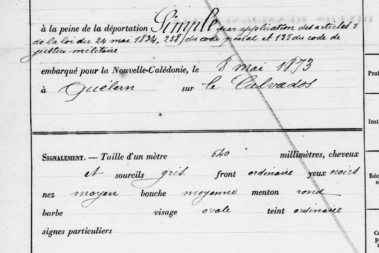 à la peine de la déportation Simple par application des articles 5
de la loi du 24 mai 1834, 258 du code pénal et 135 du code de
justice militaire
embarqué pour la Nouvelle-Calédonie, le 8 mai 1873
à Quélern sur le Calvados
Prof
Inst
SIGNALEMENT. — Taille d'un mètre 640 millimètres, cheveux
et sourcils gris front ordinaire yeux noirs
nez moyen bouche moyenne menton rond
barbe visage ovale teint ordinaire
signes particuliers
Co